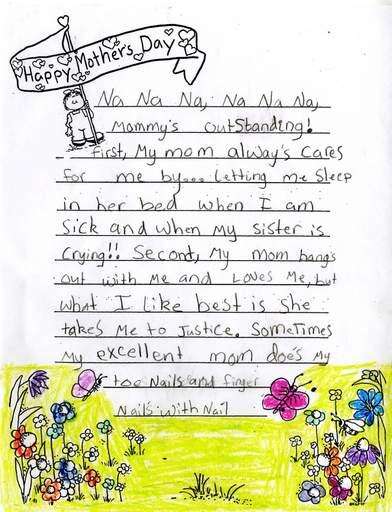 Happy Mother's Day
Na Na Na, Na Na Na,
Mommy's outstanding!
First, My mom alway's cares
for me by... Letting me sleep
in her bed when I am
sick and when my sister is
crying!! Secont, My mom hangs
out with Me and Loves Me, but
what I like best is she
take's Me to Justice. Sometimes
My excellent mom doe's My
toe Nails and finger
Nails with Nail